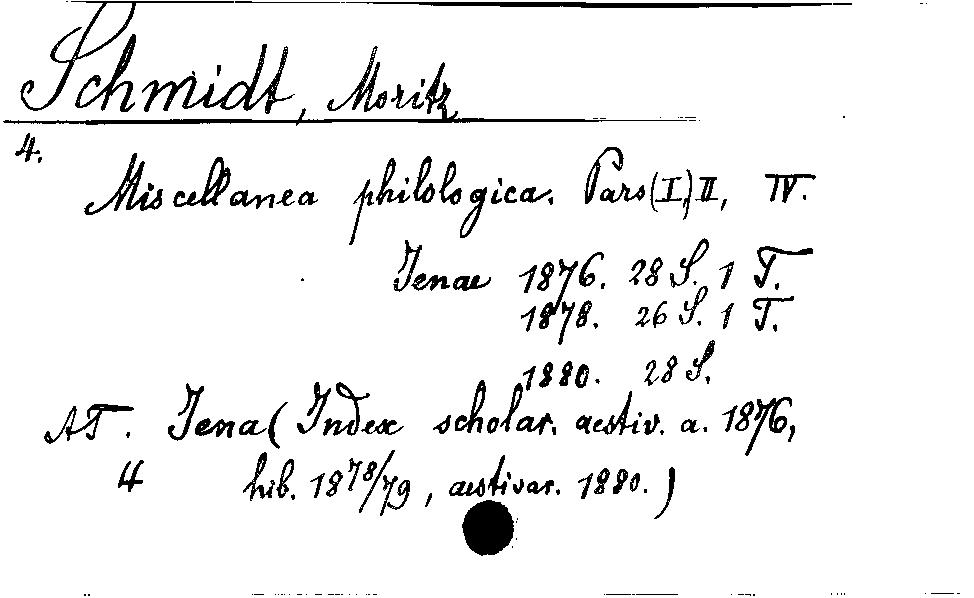 Schmidt, Moritz
4.
Miscellanea philologica. Pars (I,) II, IV.
Jenae 1876. 28 S. 1 T.
1878. 26 S. 1 T.
1880. 28 S.
AT. Jena (Index scholar. aestiv. a. 1876,
4 hib. 1878/79, aestivar. 1880.)